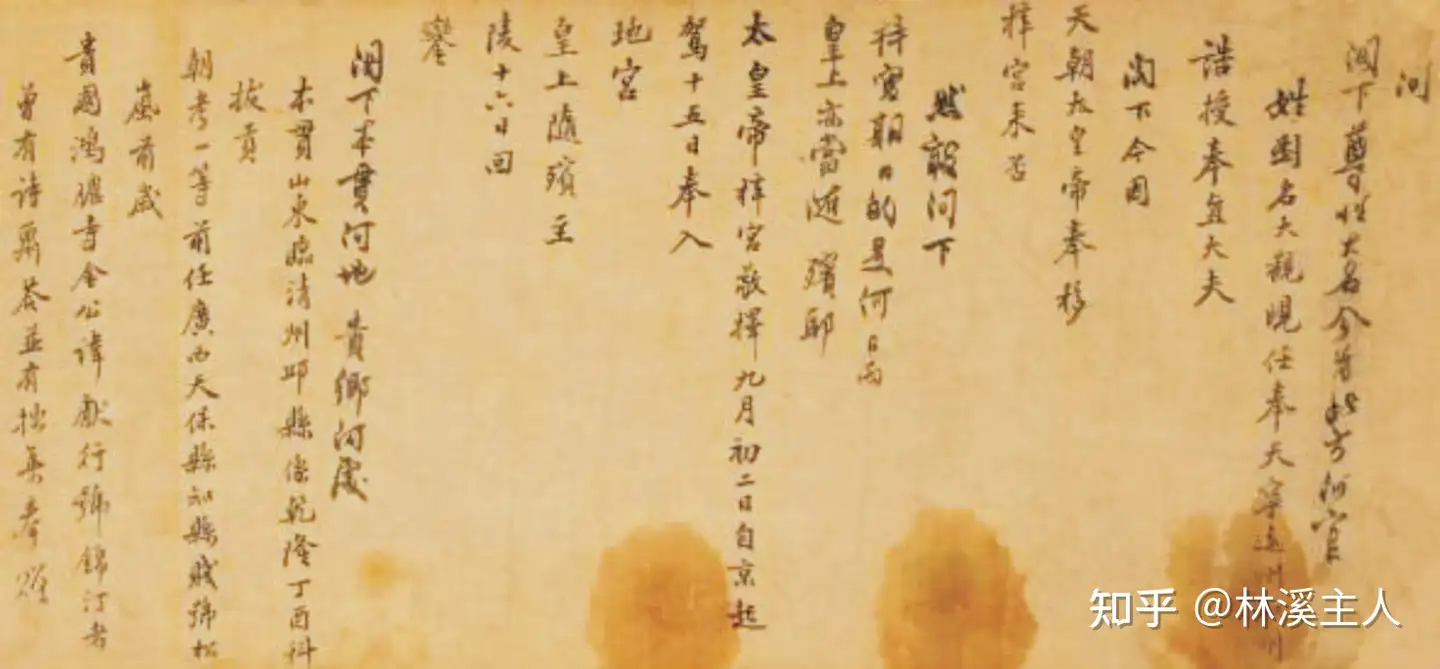 問
閣下尊姓大名今方何官
姓劉名大觀現任奉天寧遠州
誥授奉直大夫
閣下今因
天朝太皇帝奉移
梓宮来否
然敢问下
梓宮期日的是何日而
皇上亦當随殯耶
太皇帝梓宮敬擇九月初二日自京起
駕十五日奉入
地宮
皇上隨殯至
陵十六日回
鑾
閣下本貫何地 貴鄉何處
本貫山東臨清州邱縣係乾隆丁酉科
拔貢
朝考一等前任廣西天保縣知縣賤號松
嵐前歲
貴國鴻臚寺金公諱獻行號錦汀者
曾有詩冊荅並有拙集奉
知乎 @林溪主人